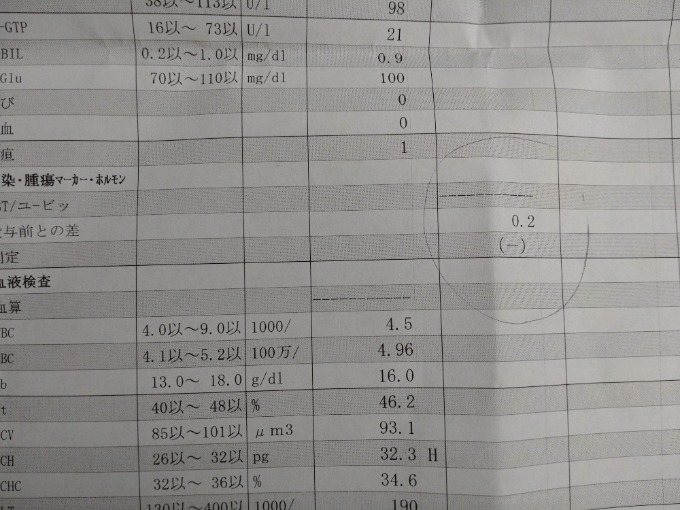 38以～113以 U/l 98
-GTP 16以～ 73以 U/l 21
BIL 0.2以～1.0以 mg/dl 0.9
Glu 70以～110以 mg/dl 100
び 0
血 0
疸 1
染・腫瘍マーカー・ホルモン
BT/ユービッ ------------
与前との差 0.2
定 (－)
液検査
算 ------------
BC 4.0以～9.0以 1000/ 4.5
BC 4.1以～5.2以 100万/ 4.96
b 13.0～ 18.0 g/dl 16.0
t 40以～ 48以 % 46.2
CV 85以～101以 μm3 93.1
CH 26以～ 32以 pg 32.3 H
CHC 32以～ 36以 % 34.6
130以～400以 1000/ 190